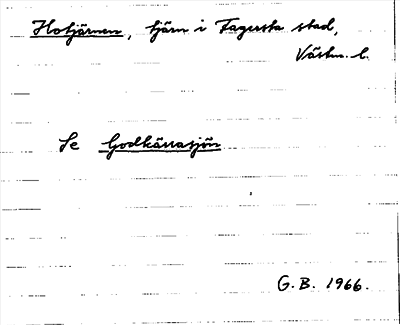 Hotjärnen, tjärn i Fagersta stad,
Västm. l.
Se Godkärrasjön
G. B. 1966.